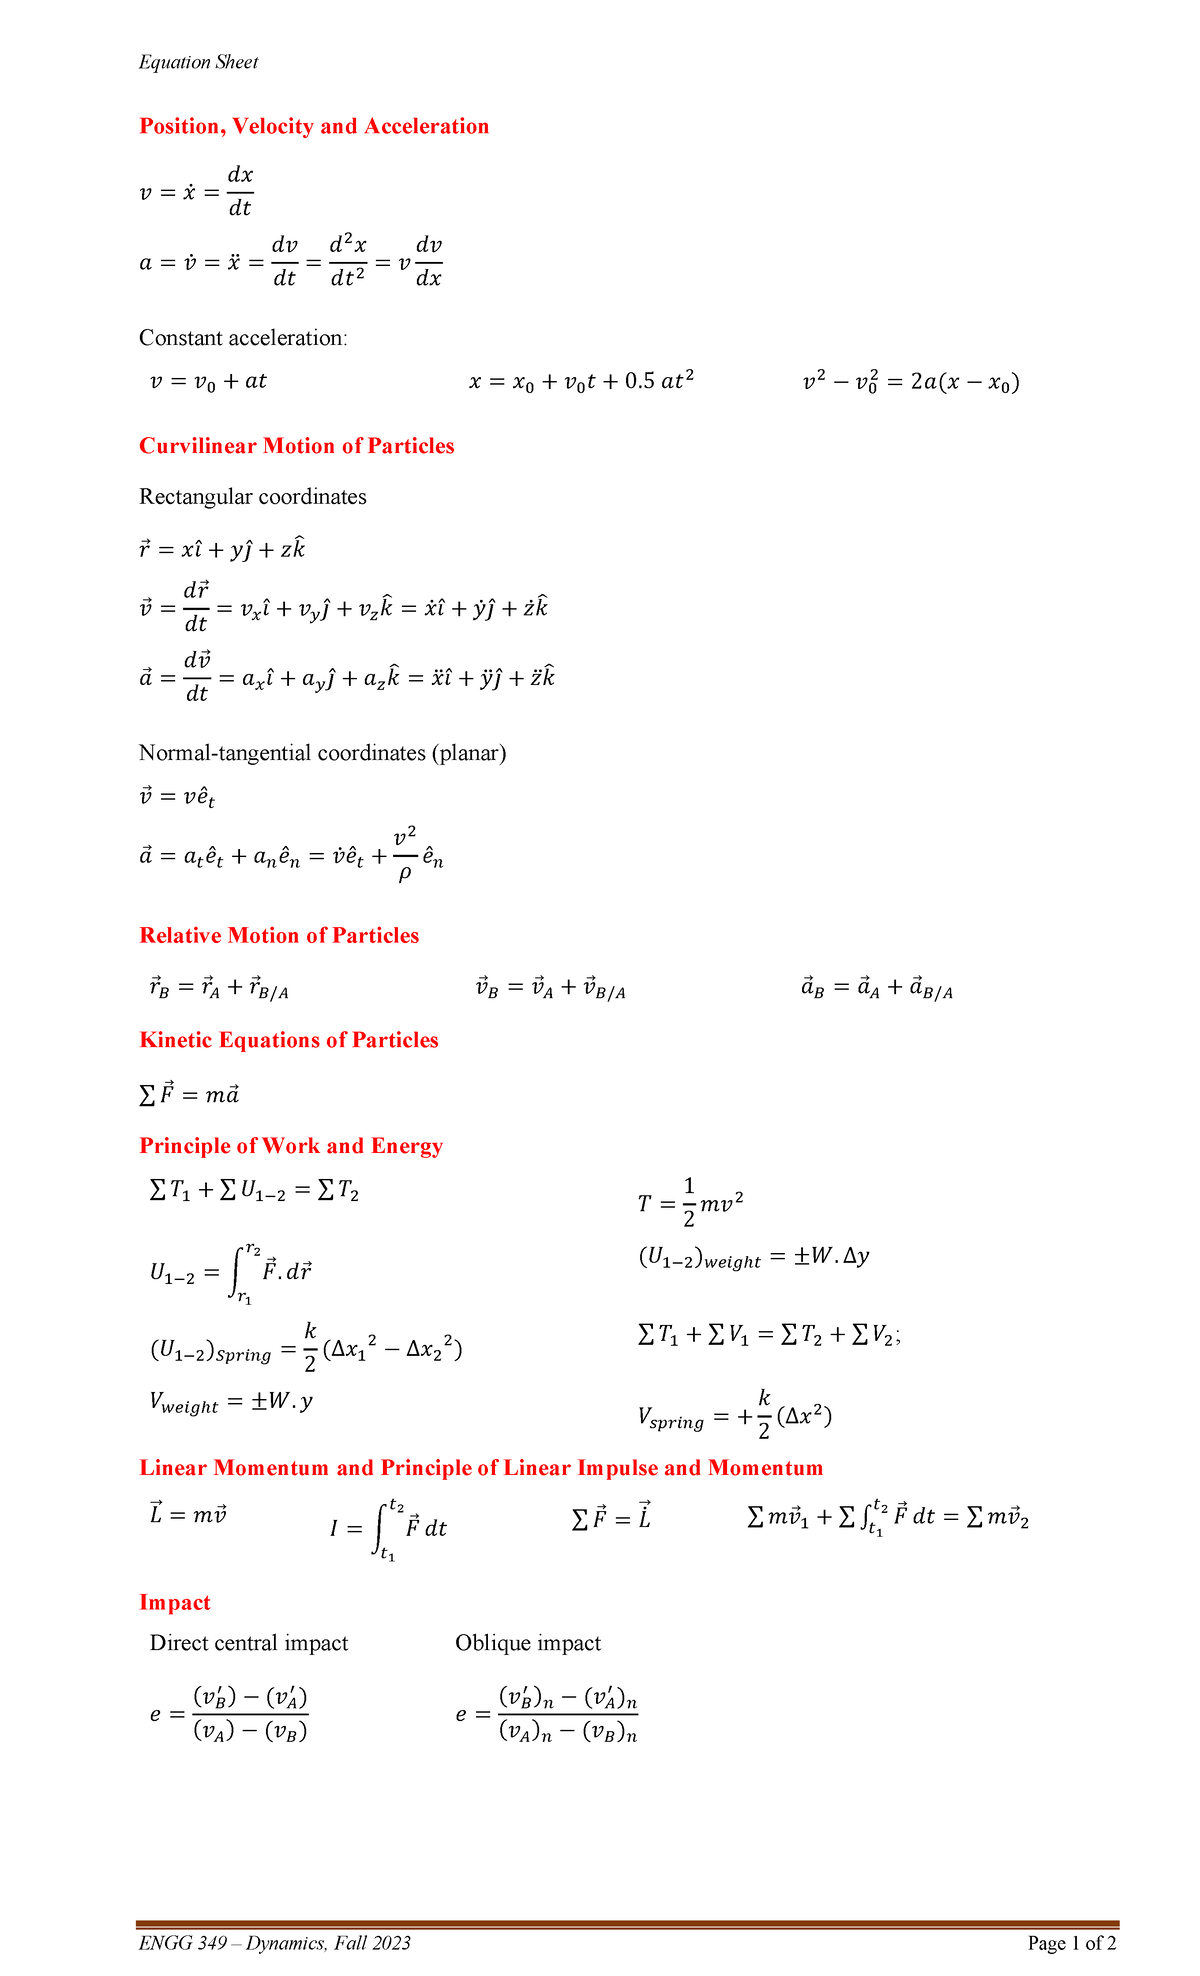 Equation Sheet
Position, Velocity and Acceleration
v = ẋ = dx/dt
a = v̇ = ẍ = dv/dt = d²x/dt² = v dv/dx
Constant acceleration:
v = v₀ + at x = x₀ + v₀t + 0.5 at² v² − v₀² = 2a(x − x₀)
Curvilinear Motion of Particles
Rectangular coordinates
r⃗ = xî + yĵ + zk̂
v⃗ = dr⃗/dt = vₓî + v_yĵ + v_zk̂ = ẋî + ẏĵ + żk̂
a⃗ = dv⃗/dt = aₓî + a_yĵ + a_zk̂ = ẍî + ÿĵ + z̈k̂
Normal-tangential coordinates (planar)
v⃗ = vêₜ
a⃗ = aₜêₜ + aₙêₙ = v̇êₜ + v²/ρ êₙ
Relative Motion of Particles
r⃗_B = r⃗_A + r⃗_B/A v⃗_B = v⃗_A + v⃗_B/A a⃗_B = a⃗_A + a⃗_B/A
Kinetic Equations of Particles
∑ F⃗ = ma⃗
Principle of Work and Energy
∑ T₁ + ∑ U₁₋₂ = ∑ T₂ T = 1/2 mv²
U₁₋₂ = ∫_r₁^r₂ F⃗. dr⃗ (U₁₋₂)_weight = ±W. Δy
(U₁₋₂)_Spring = k/2 (Δx₁² − Δx₂²) ∑ T₁ + ∑ V₁ = ∑ T₂ + ∑ V₂;
V_weight = ±W. y V_spring = + k/2 (Δx²)
Linear Momentum and Principle of Linear Impulse and Momentum
L⃗ = mv⃗ I = ∫_t₁^t₂ F⃗ dt ∑ F⃗ = L⃗̇ ∑ mv⃗₁ + ∑ ∫_t₁^t₂ F⃗ dt = ∑ mv⃗₂
Impact
Direct central impact Oblique impact
e = ((v′_B) − (v′_A))/((v_A) − (v_B)) e = ((v′_B)ₙ − (v′_A)ₙ)/((v_A)ₙ − (v_B)ₙ)
ENGG 349 – Dynamics, Fall 2023 Page 1 of 2